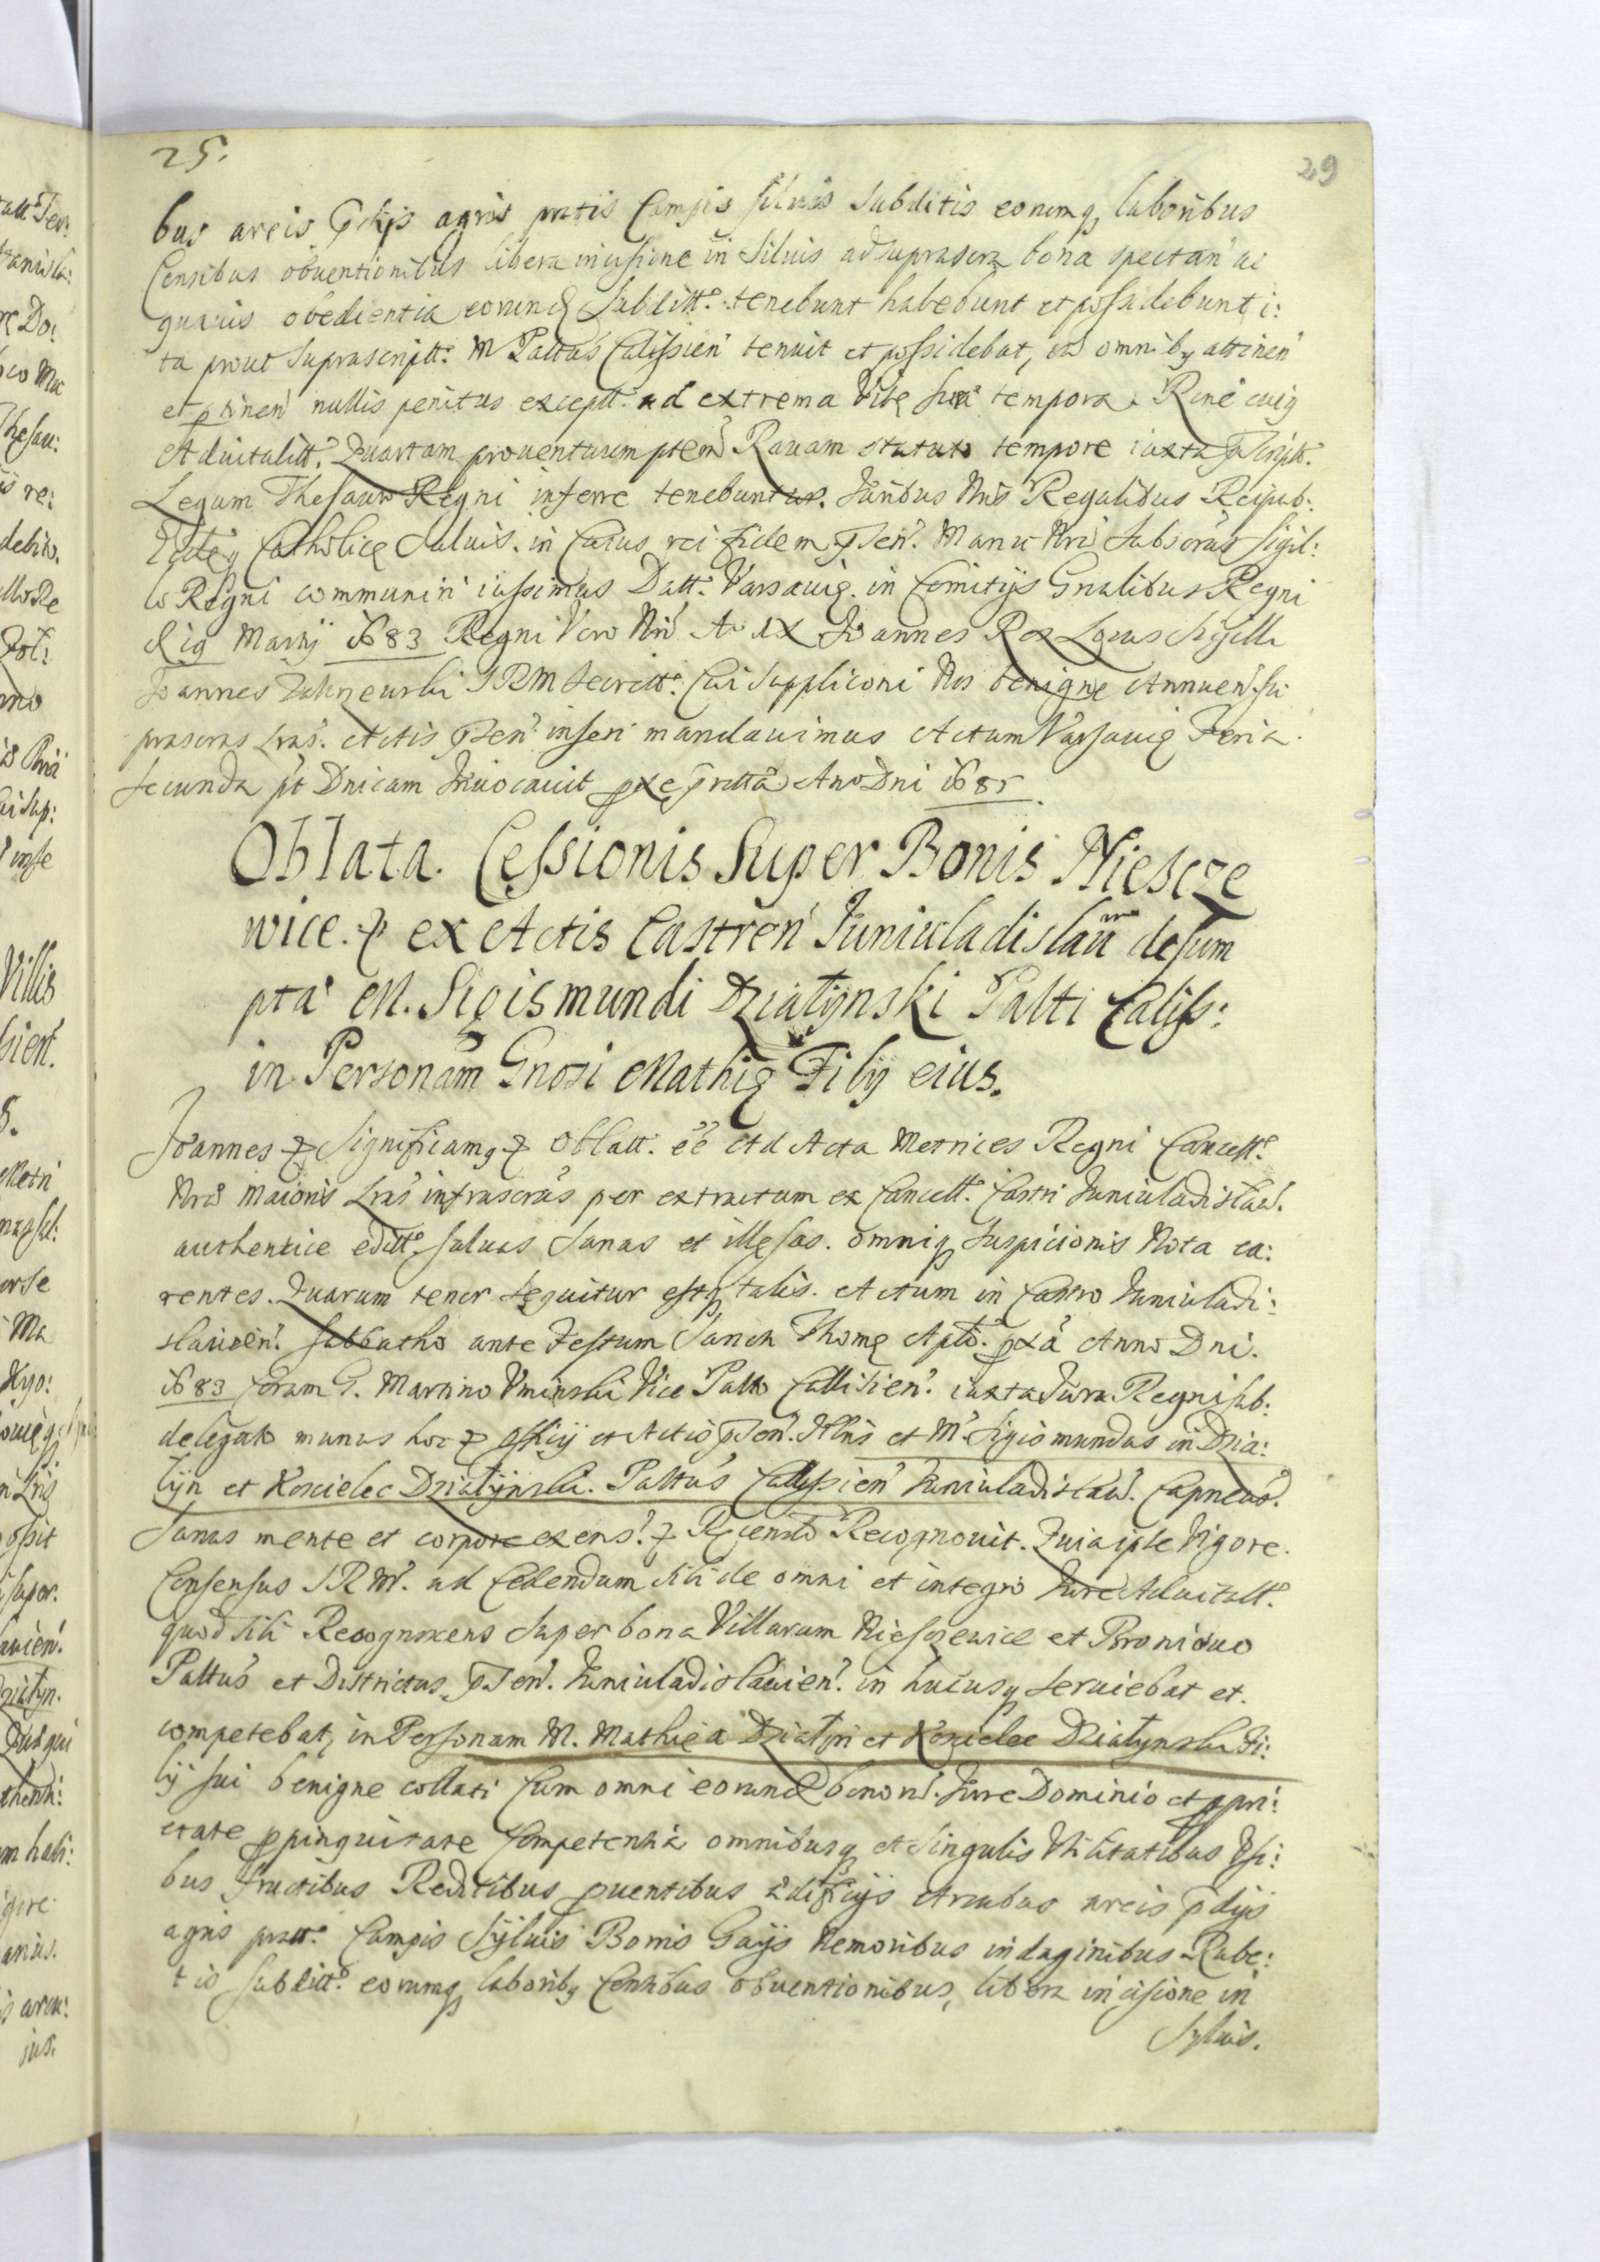 25.
29
bus areis pdijs agris pratis Campis siluis Subditis eorumq laboribus
Censibus obuentionibus libera incisione in Siluis ad suprascra bona spectan' ac
quauis obedientia eorund Subditt. tenebunt habebunt et possidebunt i:
ta prout Suprascriptt. M Palttus Calissien' tenuit et possidebat, cu omnibq attinen'
et ptinen' nullis penitus exceptt. ad extrema Vitę suę tempora. Rone cuiq
Aduitalitt. Quartam prouentuum ptem Rauam statuto tempore iuxta pscriptt.
Legum Thesauro Regni inferre tenebuntur. Juribus Nris Regalibus Reipub:
Eccle q Catholicę Saluis. in Cuius rei fidem psen'. Manu Nra Subscras Sigil:
lo Regni communiri iussimus Datt. Varsauię. in Comitijs Gnalibus Regni
die Martij 1683 Regni Vero Nri Ao IX Joannes Rex Locus Sigilli
Joannes SRM Secrett. Cui Suppliconi Nos benigne Annuen. su
prascras Lras. Actis psen' inseri mandauimus Actum Varsauię Feria
secunda pt Dnicam Inuocauit pxe pritta Ano Dni 1685
Oblata. Cessionis Super Bonis Niescze
wice. & ex Actis Castren' Juniuladislauien' desum
pta' M. Sigismundi Działynski Paltti Caliss:
in Personam Gnosi Mathię Filij eius.
Joannes & Significamq & Oblatt. eē Ad Acta Metrices Regni Cancelt.
Nra Maioris Lras infrascras per extractum ex Cancelt. Castri Juniuladislau.
authentice editt. saluas Sanas et illęsas. omniq Suspicionis Nota ca:
rentes. Quarum tenor Sequitur estq talis. Actum in Castro Juniuladi:
slauien'. Sabbatho ante Festum Sancti Thomę Aplo. pxa Anno Dni.
1683 Coram G. Martino Uminski Vice Paltto Callisien'. iuxta Jura Regni sub:
delegato munus hoc & offitij et Actis psen'. Illris et M. Sigismundus in Dzia:
łyn et Koscielec Działynski. Palttus Callissien' Juniuladislau. Capneus.
Sanus mente et corpore exens'. & Recensto Recognouit. Quia ipse Vigore.
Consensus SRM. ad Cedendum sibi de omni et integro Jure Aduitalt.
quod sibi Recognoscens Super bona Villarum Niesczewice et Broniewo
Palttus et Districtus psen'. Juniuladislauien'. in hucusq seruiebat et.
competebat, in Personam M. Mathię a Działyn et Koscielec Działynski Fi:
lij sui benigne collati Cum omni eorund bonor. Jure Dominio et ppri:
etate ppinquitate Competentia omnibusq et Singulis Vtilitatibus Vsi:
bus fructibus Reditibus puentibus ędificijs Areabus areis pdijs
agris pratt. Campis Syluis Borris Gaijs Nemoribus indaginibus Rube:
tis subditt. eorumq laboribq Censibus obuentionibus, libera incisione in
Syluis.